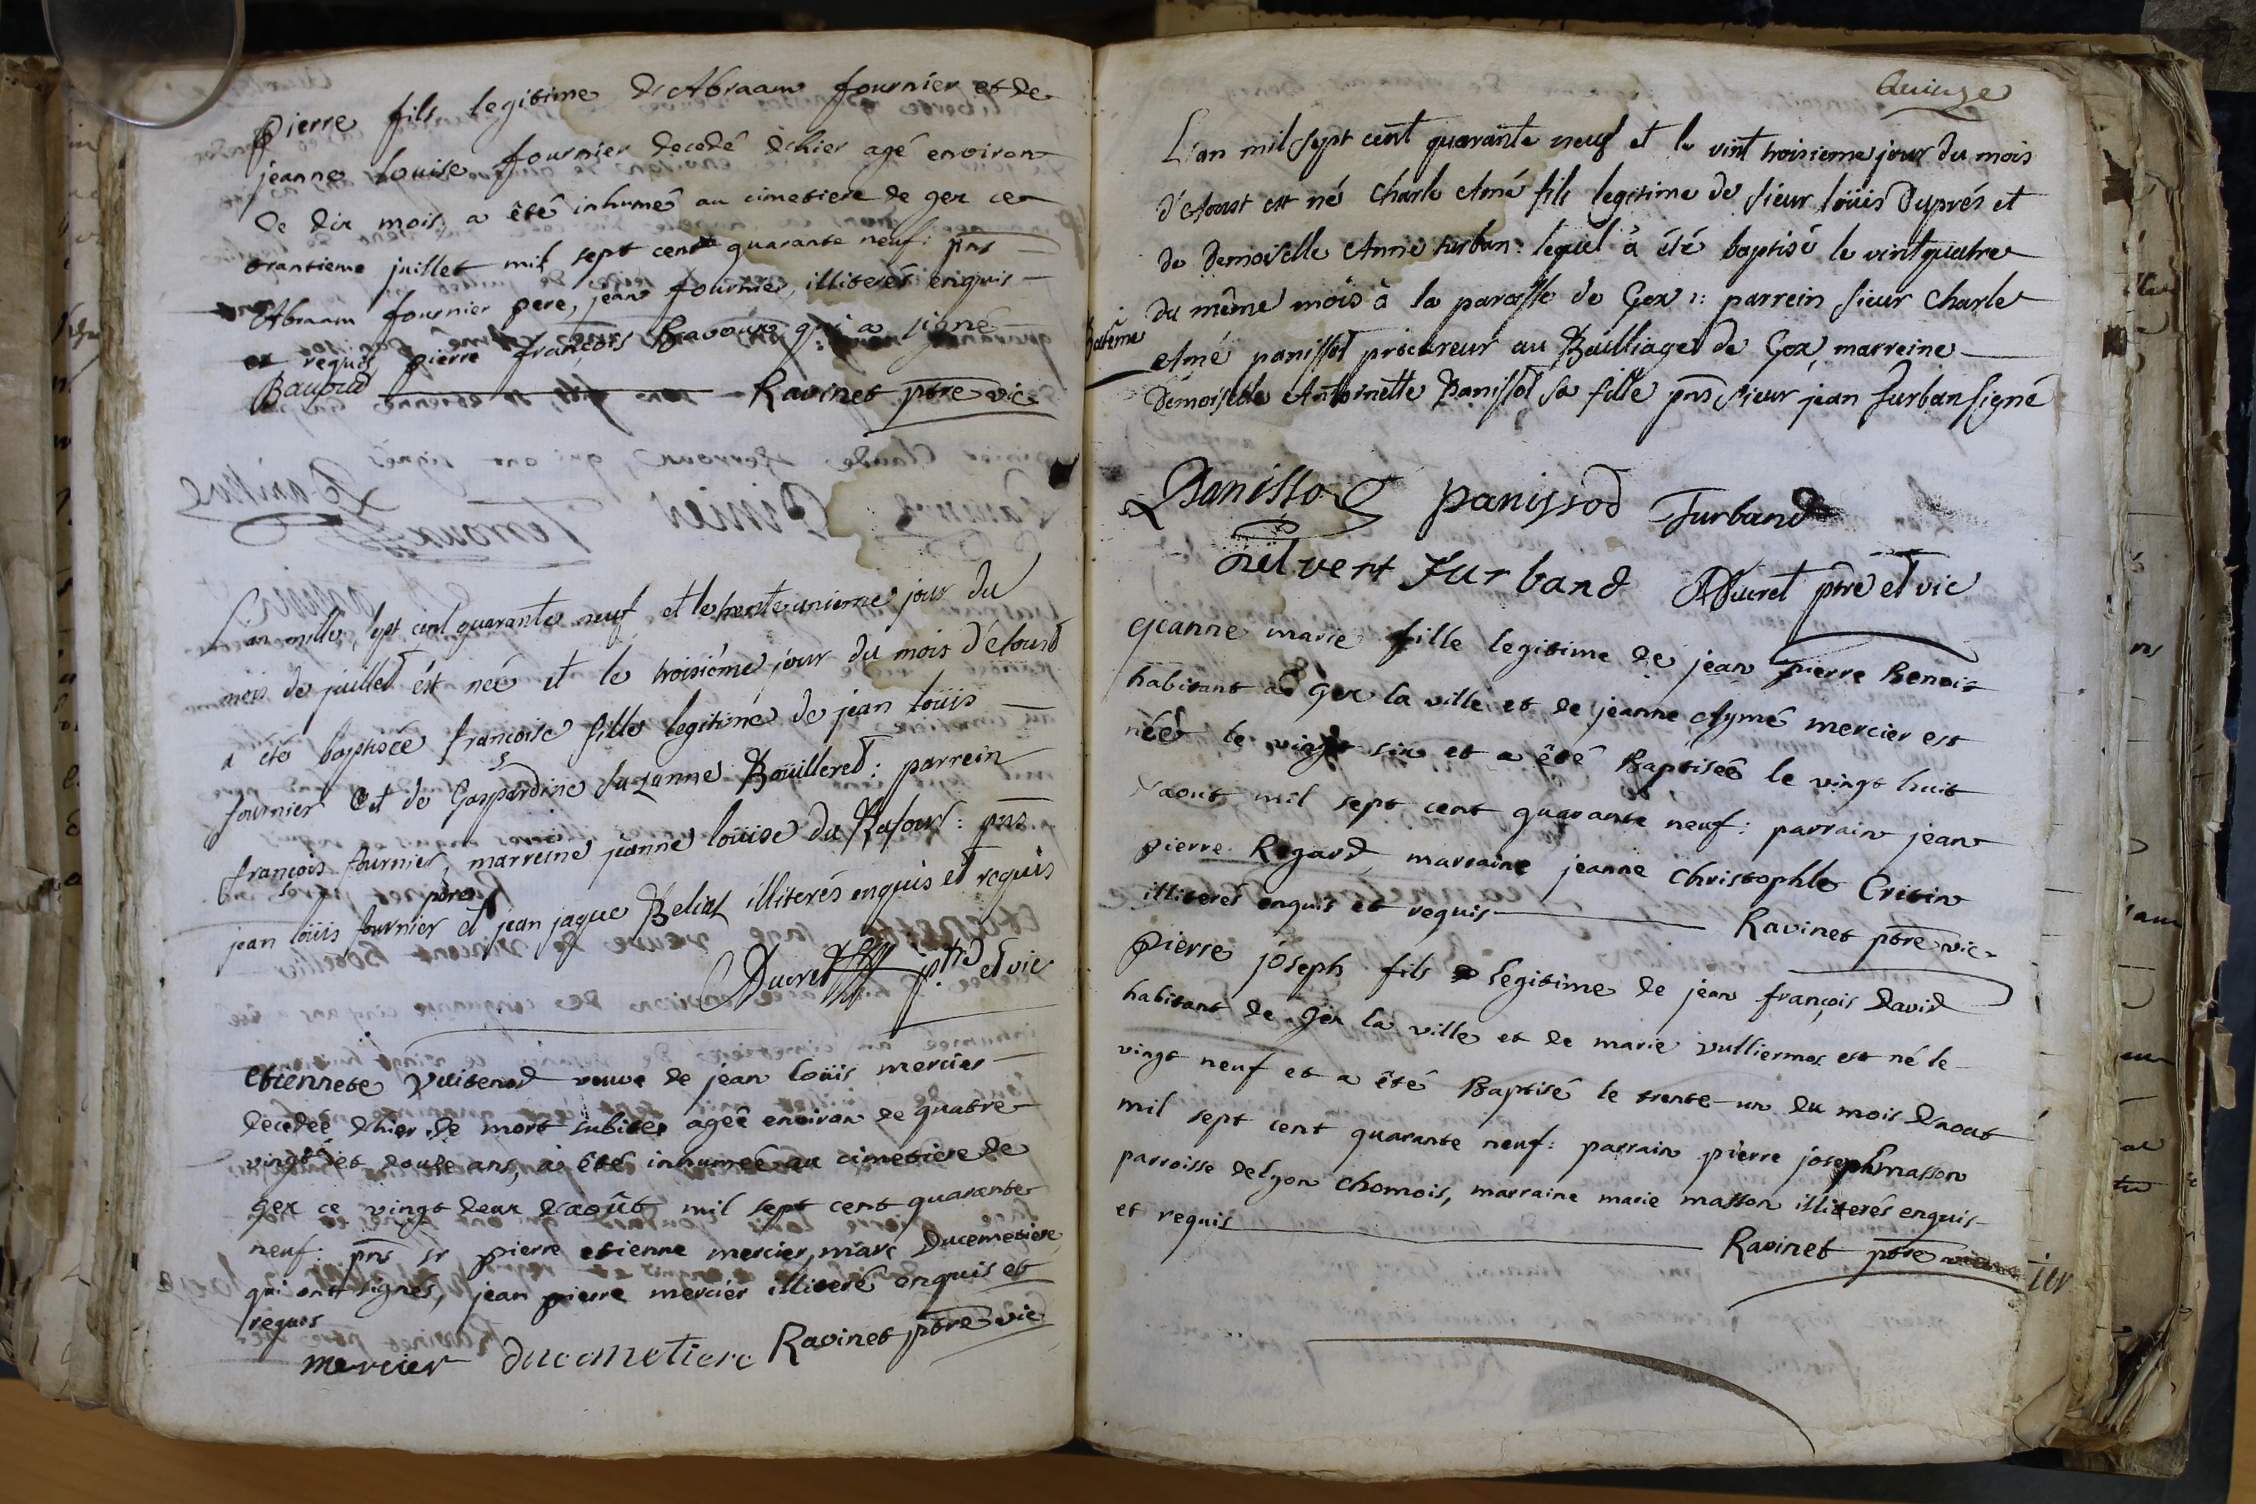 Pierre fils legitime d'Abraam fournier et de
jeanne Louise fournier decedé d'hier agé environ
de dix mois, a êté inhumé au cimetiere de gex ce
trantieme juillet mil sept cent quarante neuf: pns
Abraam fournier pere, jean fournier, illiterés enquis
et requis, pierre francois Bavoux qui a signé
Bavoud Ravinet ptre vic
L'an mille, sept cent quarante neuf et le trente unieme jour du
mois de juillet est née et le troisiéme jour du mois d'Aoust
a été baptisée francoise fille legitime de jean loüis
fournier et de Gaspardine Suzanne Boüilleret: parrein
françois fournier, marreine jeanne loüise du Rafour: pns
jean loüis fournier pere et jean jaque Belias illiterés enquis et requis
Ducret ptre et vic
etiennete Vuitenod veuve de jean loüis mercier
decedeé d'hier de mort subite, ageê environ de quatre
vingt et douse ans, a êté inhumeé au cimetiere de
gex ce vingt deux d'août mil sept cent quarante
neuf: pns sr pierre etienne mercier, marc Ducemetiere
qui ont signés, jean pierre merciér illiteré enquis et
requis
mercier ducemetiere Ravinet ptre vic
Quinze
L'an mil sept cent quarante neuf et le vint troisieme jour du mois
d'Aoust est né Charle Amé fils legitime de sieur loüis Duprés et
de demoiselle Anne furban: lequel à été baptisé le vintquatre
du même mois à la paroisse de Gex: parrein sieur Charle
Batême
Amé panissot procureur au Bailliage de Gex, marreine
Demoiselle Antoinette Panissot sa fille pns sieur jean furban signé
Panissod panissod furband
furband Ducret ptre et vic
jeanne marie fille legitime de jean pierre Benoit
habitant a gex la ville et de jeanne Aymé mercier est
néé le vingt six et a êté Baptiseê le vingt huit
d'aout mil sept cent quarante neuf: parrain jean
pierre Regard, marraine jeanne Christophle Critin
illiterés enquis et requis Ravinet ptre vic
Pierre jôseph fils legitime de jean françois david
habitant de gex la ville et de marie vulliermoz est né le
vingt neuf et a êté Baptisé le trente-un du mois d'aout
mil sept cent quarante neuf: parrain pierre joseph masson
parroisse de chomois, marraine marie masson illiterés enquis
et requis Ravinet ptre